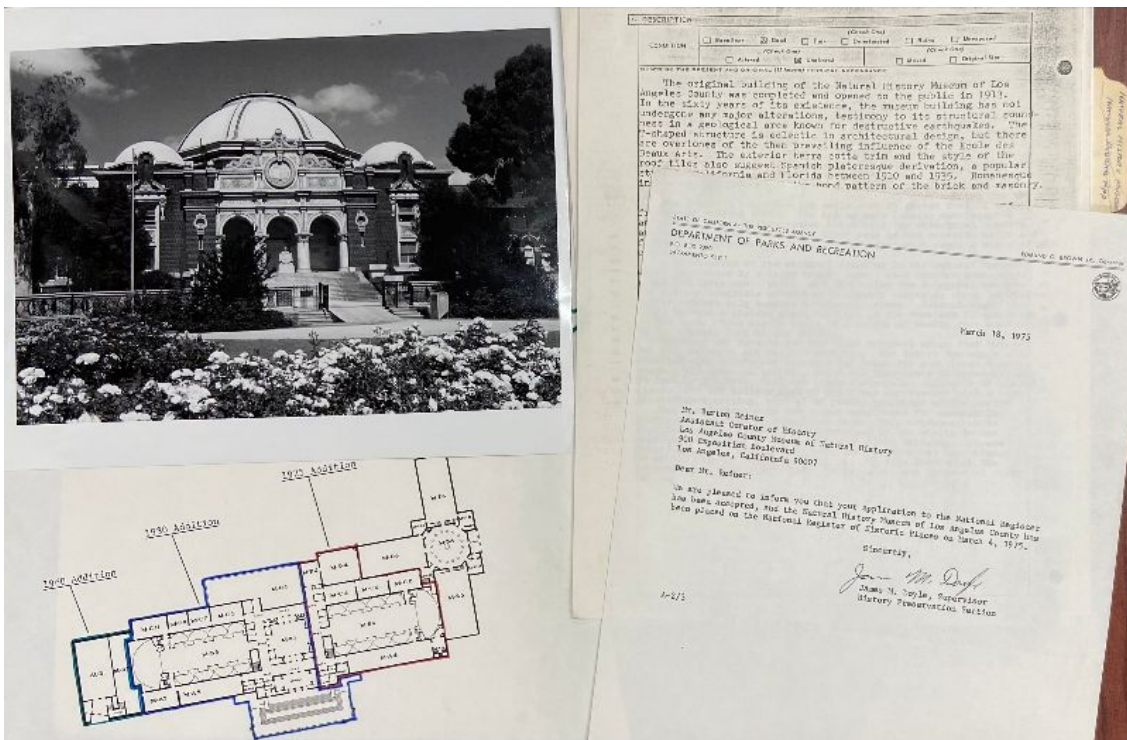 DESCRIPTION
CONDITION
(Check One)
Excellent
Good
Fair
Deteriorated
Ruins
Unexposed
(Check One)
Altered
Unaltered
(Check One)
Moved
Original Site
The original building of the Natural History Museum of Los
Angeles County was completed and opened to the public in 1913.
In the sixty years of its existence, the museum building has not
undergone any major alterations, testimony to its structural sound-
ness in a geological area known for destructive earthquakes. The
T-shaped structure is eclectic in architectural design, but there
are overtones of the then prevailing influence of the Ecole des
Beaux Arts. The exterior terra cotta trim and the style of the
roof tiles also suggest Spanish plateresque derivation, a popular
California and Florida between 1920 and 1935. Romanesque
pattern of the brick and masonry.
STATE OF CALIFORNIA-THE RESOURCES AGENCY
EDMUND G. BROWN JR., Governor
DEPARTMENT OF PARKS AND RECREATION
P.O. BOX 2390
SACRAMENTO 95811
March 18, 1975
Mr. Burton Reiner
Assistant Curator of History
Los Angeles County Museum of Natural History
900 Exposition Boulevard
Los Angeles, California 90007
Dear Mr. Reiner:
We are pleased to inform you that your application to the National Register
has been accepted, and the Natural History Museum of Los Angeles County has
been placed on the National Register of Historic Places on March 4, 1975.
Sincerely,
James M. Doyle, Supervisor
History Preservation Section
A-2/3
1960 Addition
1930 Addition
1925 Addition